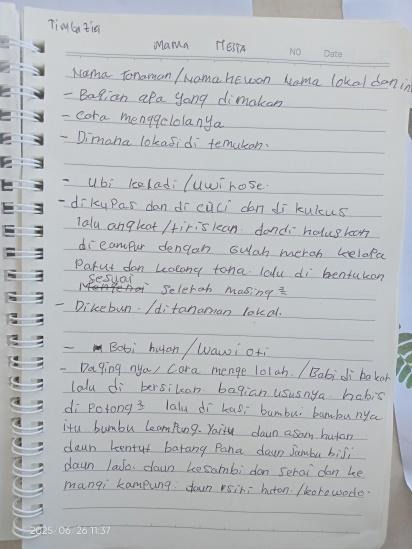 Tim Gizia
Mama Mesta
NO Date
Nama Tanaman/Nama hewan Nama lokal dan in
- Bagian apa yang dimakan
- Cara menggelolanya
- Dimana lokasi di temukan.
- Ubi keladi/uwi rose.
- dikupas dan di cuci dan di kukus
lalu angkat/tiriskan dandi haluskan
di campur dengah Gulah merah kelapa
Parut dan kacang tana lalu di bentukan
Sesuai
selerah masing²
- Dikebun./ditanaman lokal.
- Babi hutan/wawi oti
- Daging nya/cara menge lolah./Babi di bakar
lalu di bersikan bagian ususnya habis
di Potong² lalu di kasi bumbui bumbu nya
itu bumbu kampung. Yaitu daun asam hutan
daun kentut batang Paha daun Jambu biji
daun laja. daun kesambi dan serai dan ke
mangi kampung. daun hutan/korowodo.
2025 06 26 11:37